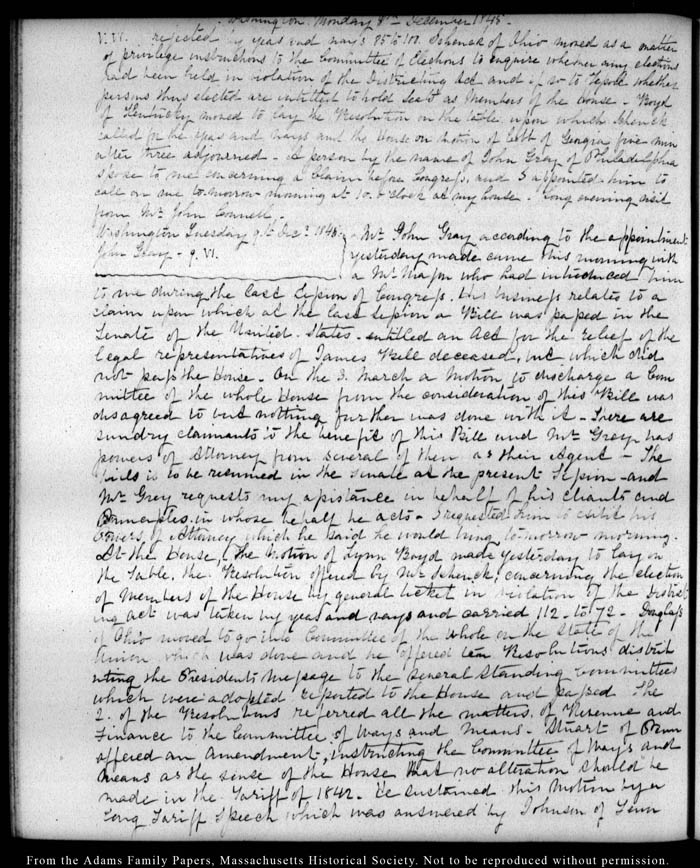 Washington. Monday 8th December 1845.
V. VI. rejected by yeas and nays 85 to 100. Schenck of Ohio moved as a matter
of privilege instructions to the Committee of Elections to enquire whether any elections
had been held in violation of the Districting Act and if so to report whether
persons thus elected are entitled to hold seats as Members of the House - Boyd
of Kentucky moved to lay the Resolution on the table, upon which Schenck
called for the yeas and nays and the House on motion of Cobb of Georgia five min
after three adjourned - A person by the name of John Gray of Philadelphia
spoke to me concerning a Claim before Congress, and I appointed him to
call on me to-morrow morning at 10. o'clock at my house. Long evening visit
from Mr. John Connell.
Washington Tuesday 9th Decr. 1845.
John Gray - 9. VI.
Mr. John Gray according to the appointment
yesterday made came this morning with
a Mr. Major who had introduced him
to me during the last Session of Congress. His business relates to a
claim upon which at the last Session a Bill was passed in the
Senate of the United States entitled an Act for the relief of the
legal representatives of James Bell deceased, but which did
not pass the House - On the 3. March a Motion to discharge a Com
mittee of the whole House from the consideration of this Bill was
disagreed to but nothing further was done with it - There are
sundry claimants to the benefit of this Bill and Mr. Gray has
powers of Attorney from several of them as their Agent - The
Bill is to be resumed in the Senate at the present Session and
Mr. Grey requests my assistance in behalf of his Cliants and
in whose behalf he acts - I requested him to exhibit his
Powers of Attorney which he said he would bring to-morrow morning.
At the House, the Motion of Lynn Boyd made yesterday to lay on
the Table, the Resolution offered by Mr Schenck, concerning the election
of Members of the House by general ticket in violation of the District
ing act was taken by yeas and nays and carried 112. to 72 - Douglass
of Ohio moved to go into Committee of the whole on the State of the
Union which was done and he offered ten Resolutions distrib
uting the President's message to the several Standing Committees
which were adopted reported to the House and passed. The
2. of the Resolutions referred all the matters of Revenue and
Finance to the Committee of Ways and Means - Stuart of Penn
offered an amendment, instructing the Committee of Ways and
Means as the sense of the House that no alteration should be
made in the Tariff of 1842. He sustained this Motion by a
long Tariff Speech which was answered by Johnson of Tenn
From the Adams Family Papers, Massachusetts Historical Society. Not to be reproduced without permission.